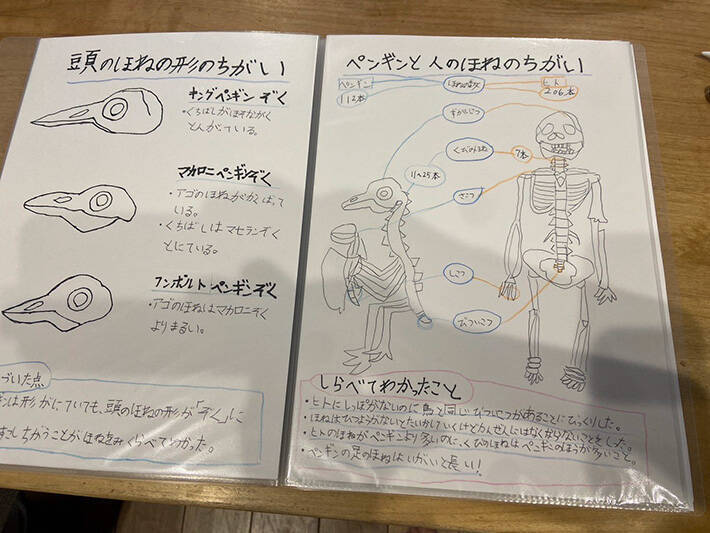 頭のほねの形のちがい
キングペギンぞく
・くちばしがほそながく
とんがている。
マカロニペンギンぞく
・アゴのほねがかくばって
いる。
・くちばしはマゼランぞく
とにている。
フンボルトペンギンぞく
・アゴのほねはマカロニぞく
よりまるい。
づいた点
は形がにていても、頭のほねの形が「ぞく」に
すこしちがうことがほね
くらべてわかった。
ペンギンと人のほねのちがい
ペンギン
112本
ほねの
ヒト
206本
ずがいこつ
くびのほね
7本
11〜25本
さこつ
しこつ
びついこつ
しらべてわかったこと
・ヒトにしっぽがないのに鳥と同じびついこつがあることにびっくりした。
・ほねはひつようがないとたいかしていくけどかんぜんにはなくならないことをした。
・ヒトのほねがペンギンより多いのに、くびのほねはペンギンのほうが多いこと。
・ペンギンの足のほねはいがいと長い!